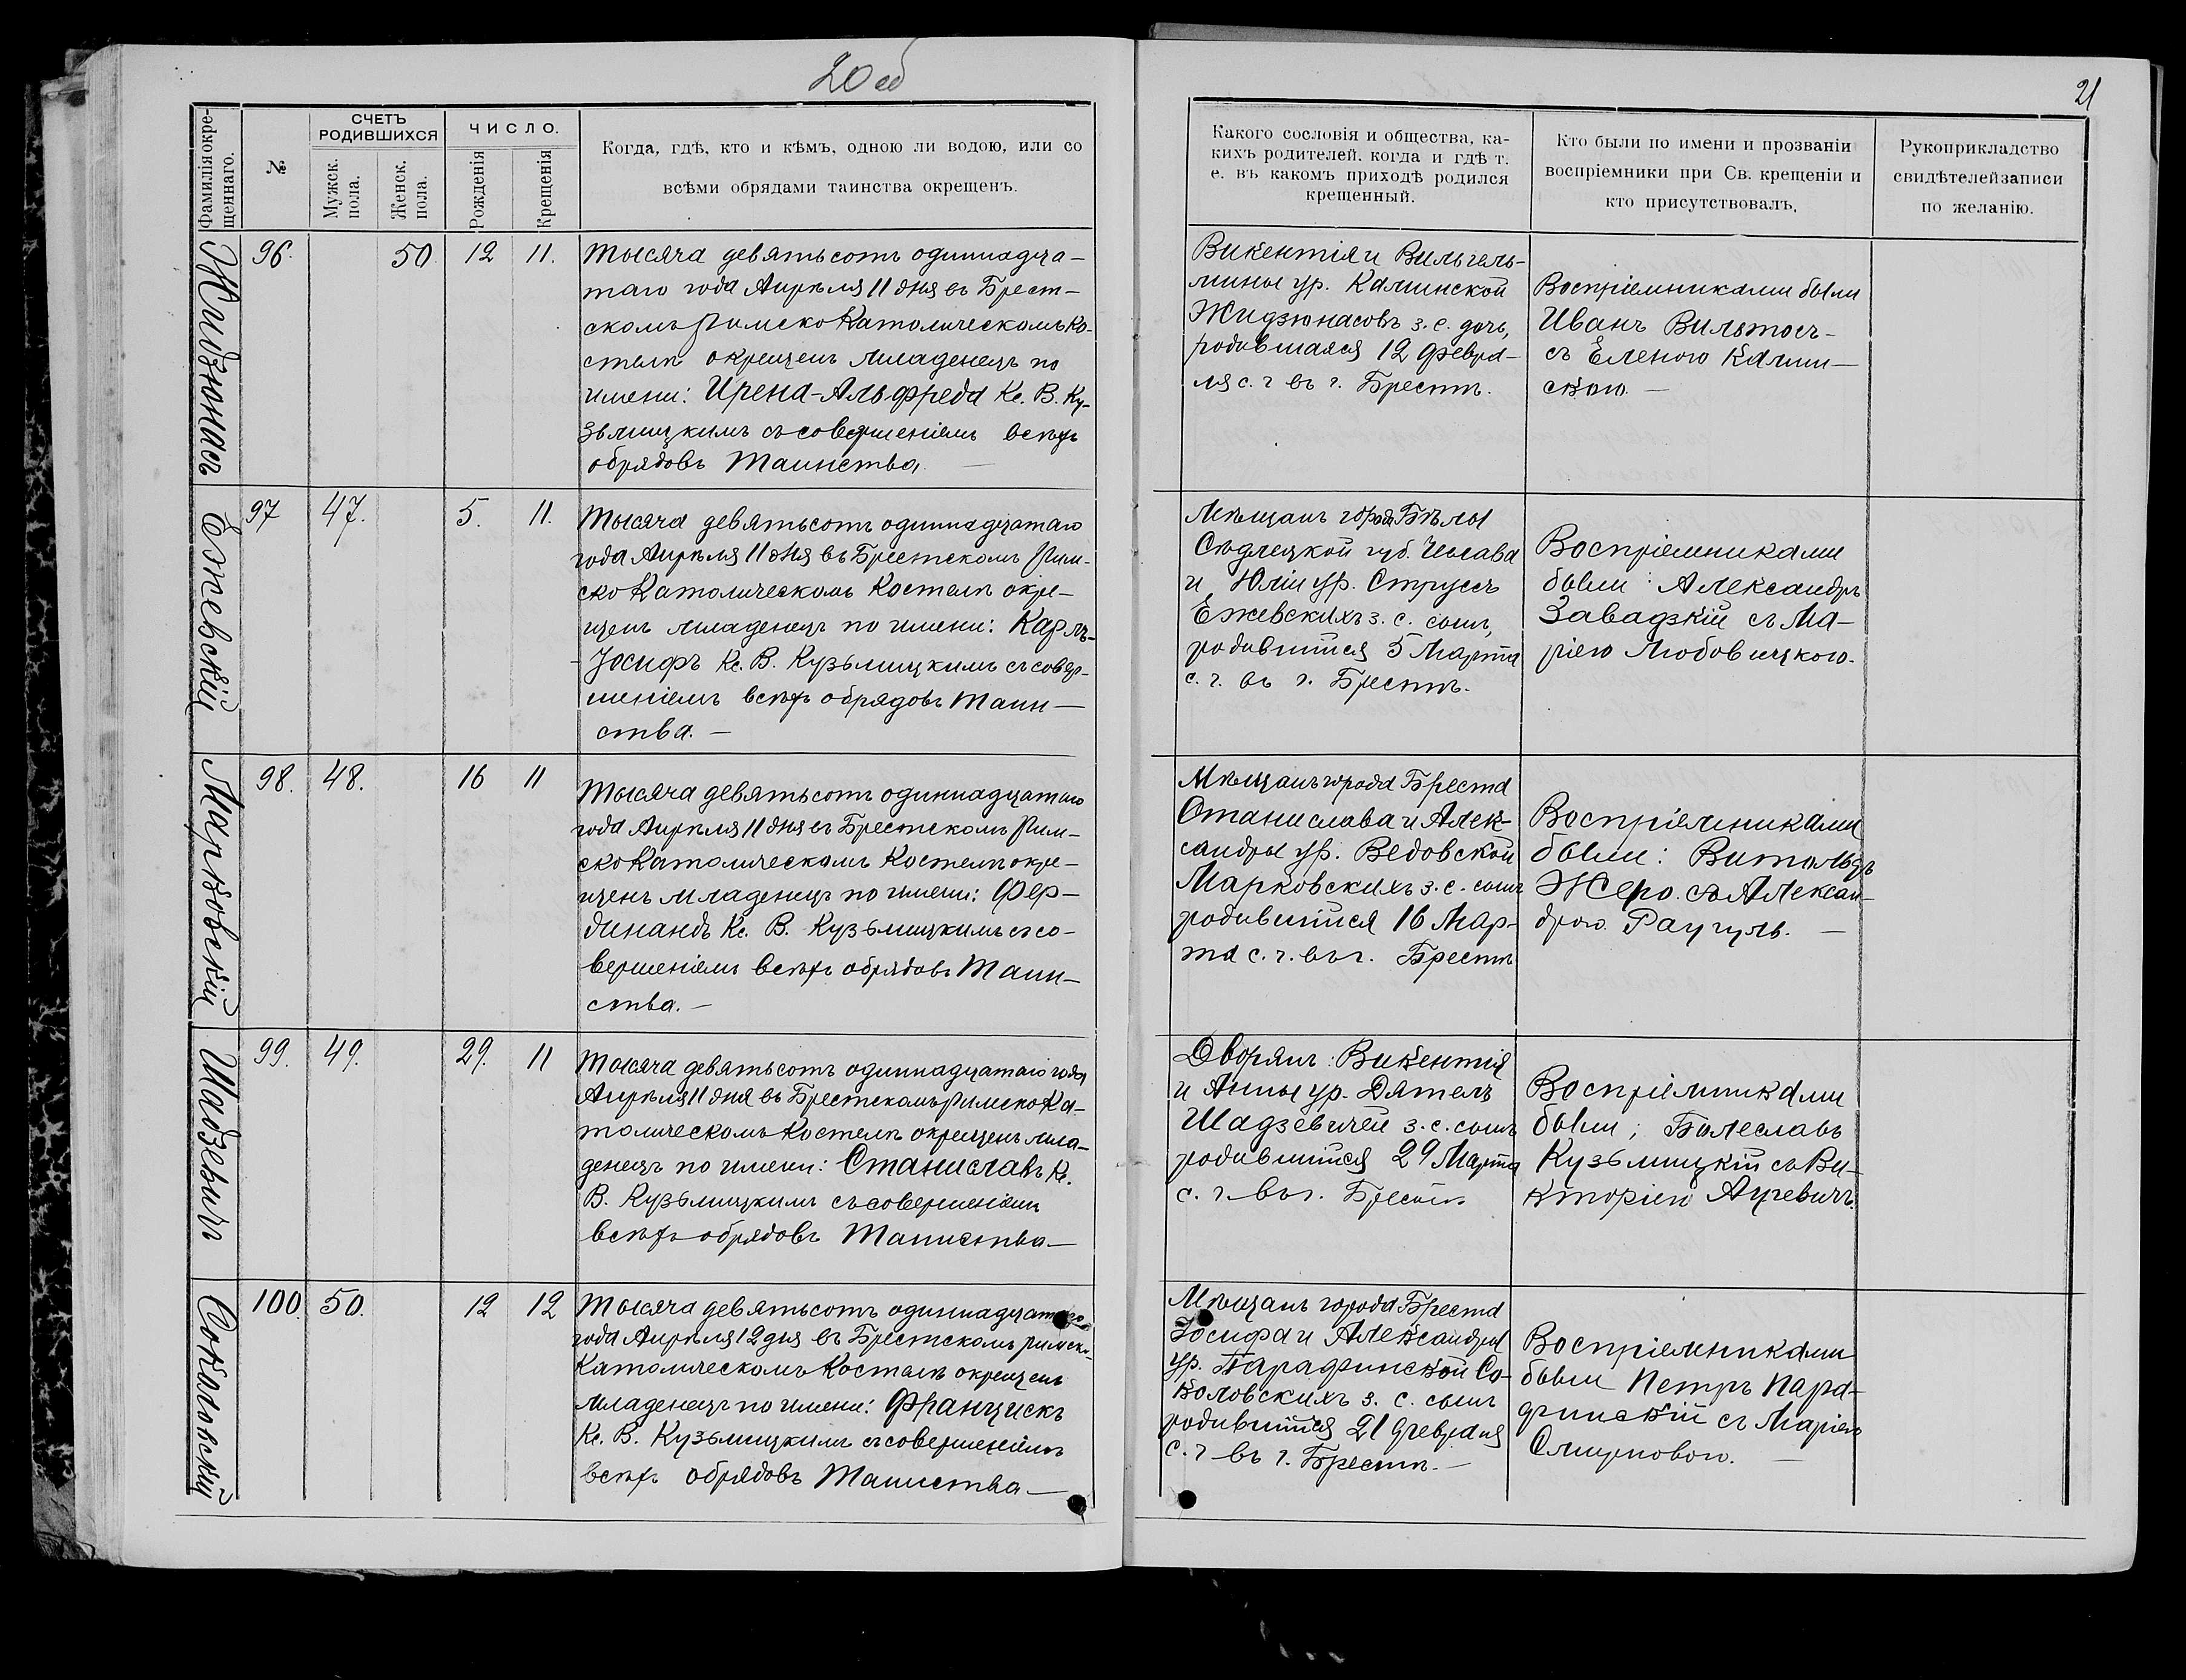 20 об
21
Фамилія окре-
щеннаго.
№
СЧЕТЪ
РОДИВШИХСЯ
Мужск.
пола.
Женск.
пола.
ЧИСЛО.
Рожденія
Крещенія
Когда, гдѣ, кто и кѣмъ, одною ли водою, или со
всѣми обрядами таинства окрещенъ.
Какого сословія и общества, ка-
кихъ родителей, когда и гдѣ т.
е. въ какомъ приходѣ родился
крещенный.
Кто были по имени и прозванію
воспріемники при Св. крещеніи и
кто присутствовалъ,
Рукоприкладство
свидѣтелей записи
по желанію.
Жидзюнасъ
96.
50.
12
11.
Тысяча девятьсотъ одиннадца-
таго года Апрѣля 11 дня въ Брест-
скомъ Римско Католическомъ Ко-
стелѣ окрещенъ младенецъ по
имени: Ирена-Альфреда Кс. В. Ку-
зьмицкимъ съ совершеніемъ всѣхъ
обрядовъ Таинства. —
Викентія и Вильгель-
мины ур. Калинской
Жидзюнасовъ з. с. дочь,
родившаяся 12 Февра-
ля с. г въ г. Брестѣ.
Воспріемниками были
Иванъ Вильтосъ-
съ Еленою Калин-
скою. —
Ежевскій
97
47.
5.
11.
Тысяча девятьсотъ одиннадцатаго
года Апрѣля 11 дня въ Брестскомъ Рим-
ско Католическомъ Костелѣ окре-
щенъ младенецъ по имени: Карлъ-
-Іосифъ Кс. В. Кузьмицкимъ съ совер-
шеніемъ всѣхъ обрядовъ Таин-
ства. —
Мѣщанъ города Бѣлы
Сѣдлецкой губ. Чеслава
и Юліи ур. Струсъ
Ежевскихъ з. с. сынъ,
родившійся 5 Марта
с. г. въ г. Брестѣ.
Воспріемниками
были: Александръ
Завадзкій съ Ма-
ріею Любовицкою.
Марковскій
98.
48.
16
11
Тысяча девятьсотъ одиннадцатаго
года Апрѣля 11 дня въ Брестскомъ Рим-
ско Католическомъ Костелѣ окре-
щенъ младенецъ по имени: Фер-
динандъ Кс. В. Кузьмицкимъ съ со-
вершеніемъ всѣхъ обрядовъ Таин-
ства. —
Мѣщанъ города Бреста
Станислава и Алек-
сандры ур. Ведовской
Марковскихъ з. с. сынъ
родившійся 16 Мар-
та с. г. въ г. Брестѣ
Воспріемниками
были: Витольдъ
Жеро съ Алексан-
дрою Раугуль. —
Шадзевичъ
99.
49.
29.
11
Тысяча девятьсотъ одиннадцатаго года
Апрѣля 11 дня въ Брестскомъ Римско Ка-
толическомъ Костелѣ окрещенъ мла-
денецъ по имени: Станиславъ Кс.
В. Кузьмицкимъ съ совершеніемъ
всѣхъ обрядовъ Таинства —
Дворянъ: Викентія
и Анны ур. Дятелъ
Шадзевичей з. с. сынъ
родившійся 29 Марта
с. г. въ г. Брестѣ
Воспріемниками
были; Болеславъ
Кузьмицкій съ Ви-
кторіею Ауревичъ.
Соколовскій
100.
50.
12
12
Тысяча девятьсотъ одиннадцатаго
года Апрѣля 12 дня въ Брестскомъ Римско-
Католическомъ Костелѣ окрещенъ
младенецъ по имени: Францискъ
Кс. В. Кузьмицкимъ съ совершеніемъ
всѣхъ обрядовъ Таинства —
Мѣщанъ города Бреста
Іосифа и Александры
ур. Парафинской Со-
коловскихъ з. с. сынъ
родившійся 21 Февраля
с. г въ г. Брестѣ. —
Воспріемниками
были Петръ Пара-
финскій съ Маріею
Смирновою. —